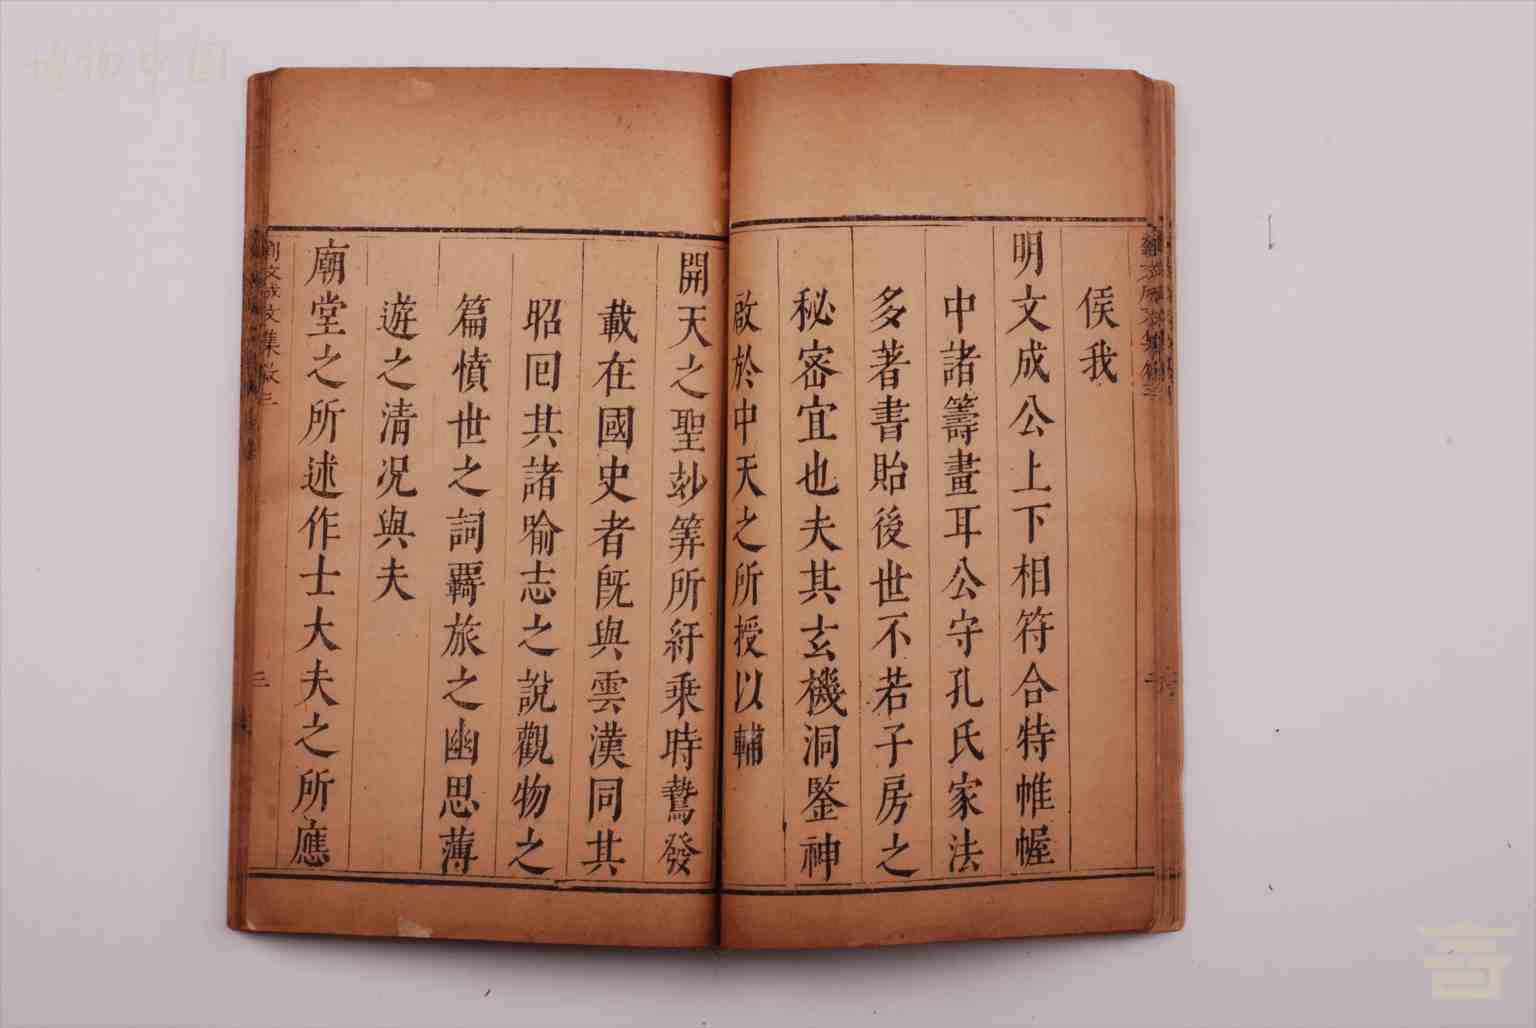 博物中国
侯我
明文成公上下相符合特帷幄
中諸籌畫耳公守孔氏家法
多著書貽後世不若子房之
秘宻宜也夫其玄機洞鋻神
啟於中天之所授以輔
開天之聖玅筭所紆乗時鷙發
載在國史者旣與雲漢同其
昭回其諸喻志之說觀物之
篇憤世之詞羇旅之幽思薄
遊之清况與夫
廟堂之所述作士大夫之所應
劉文成文集敘三
二